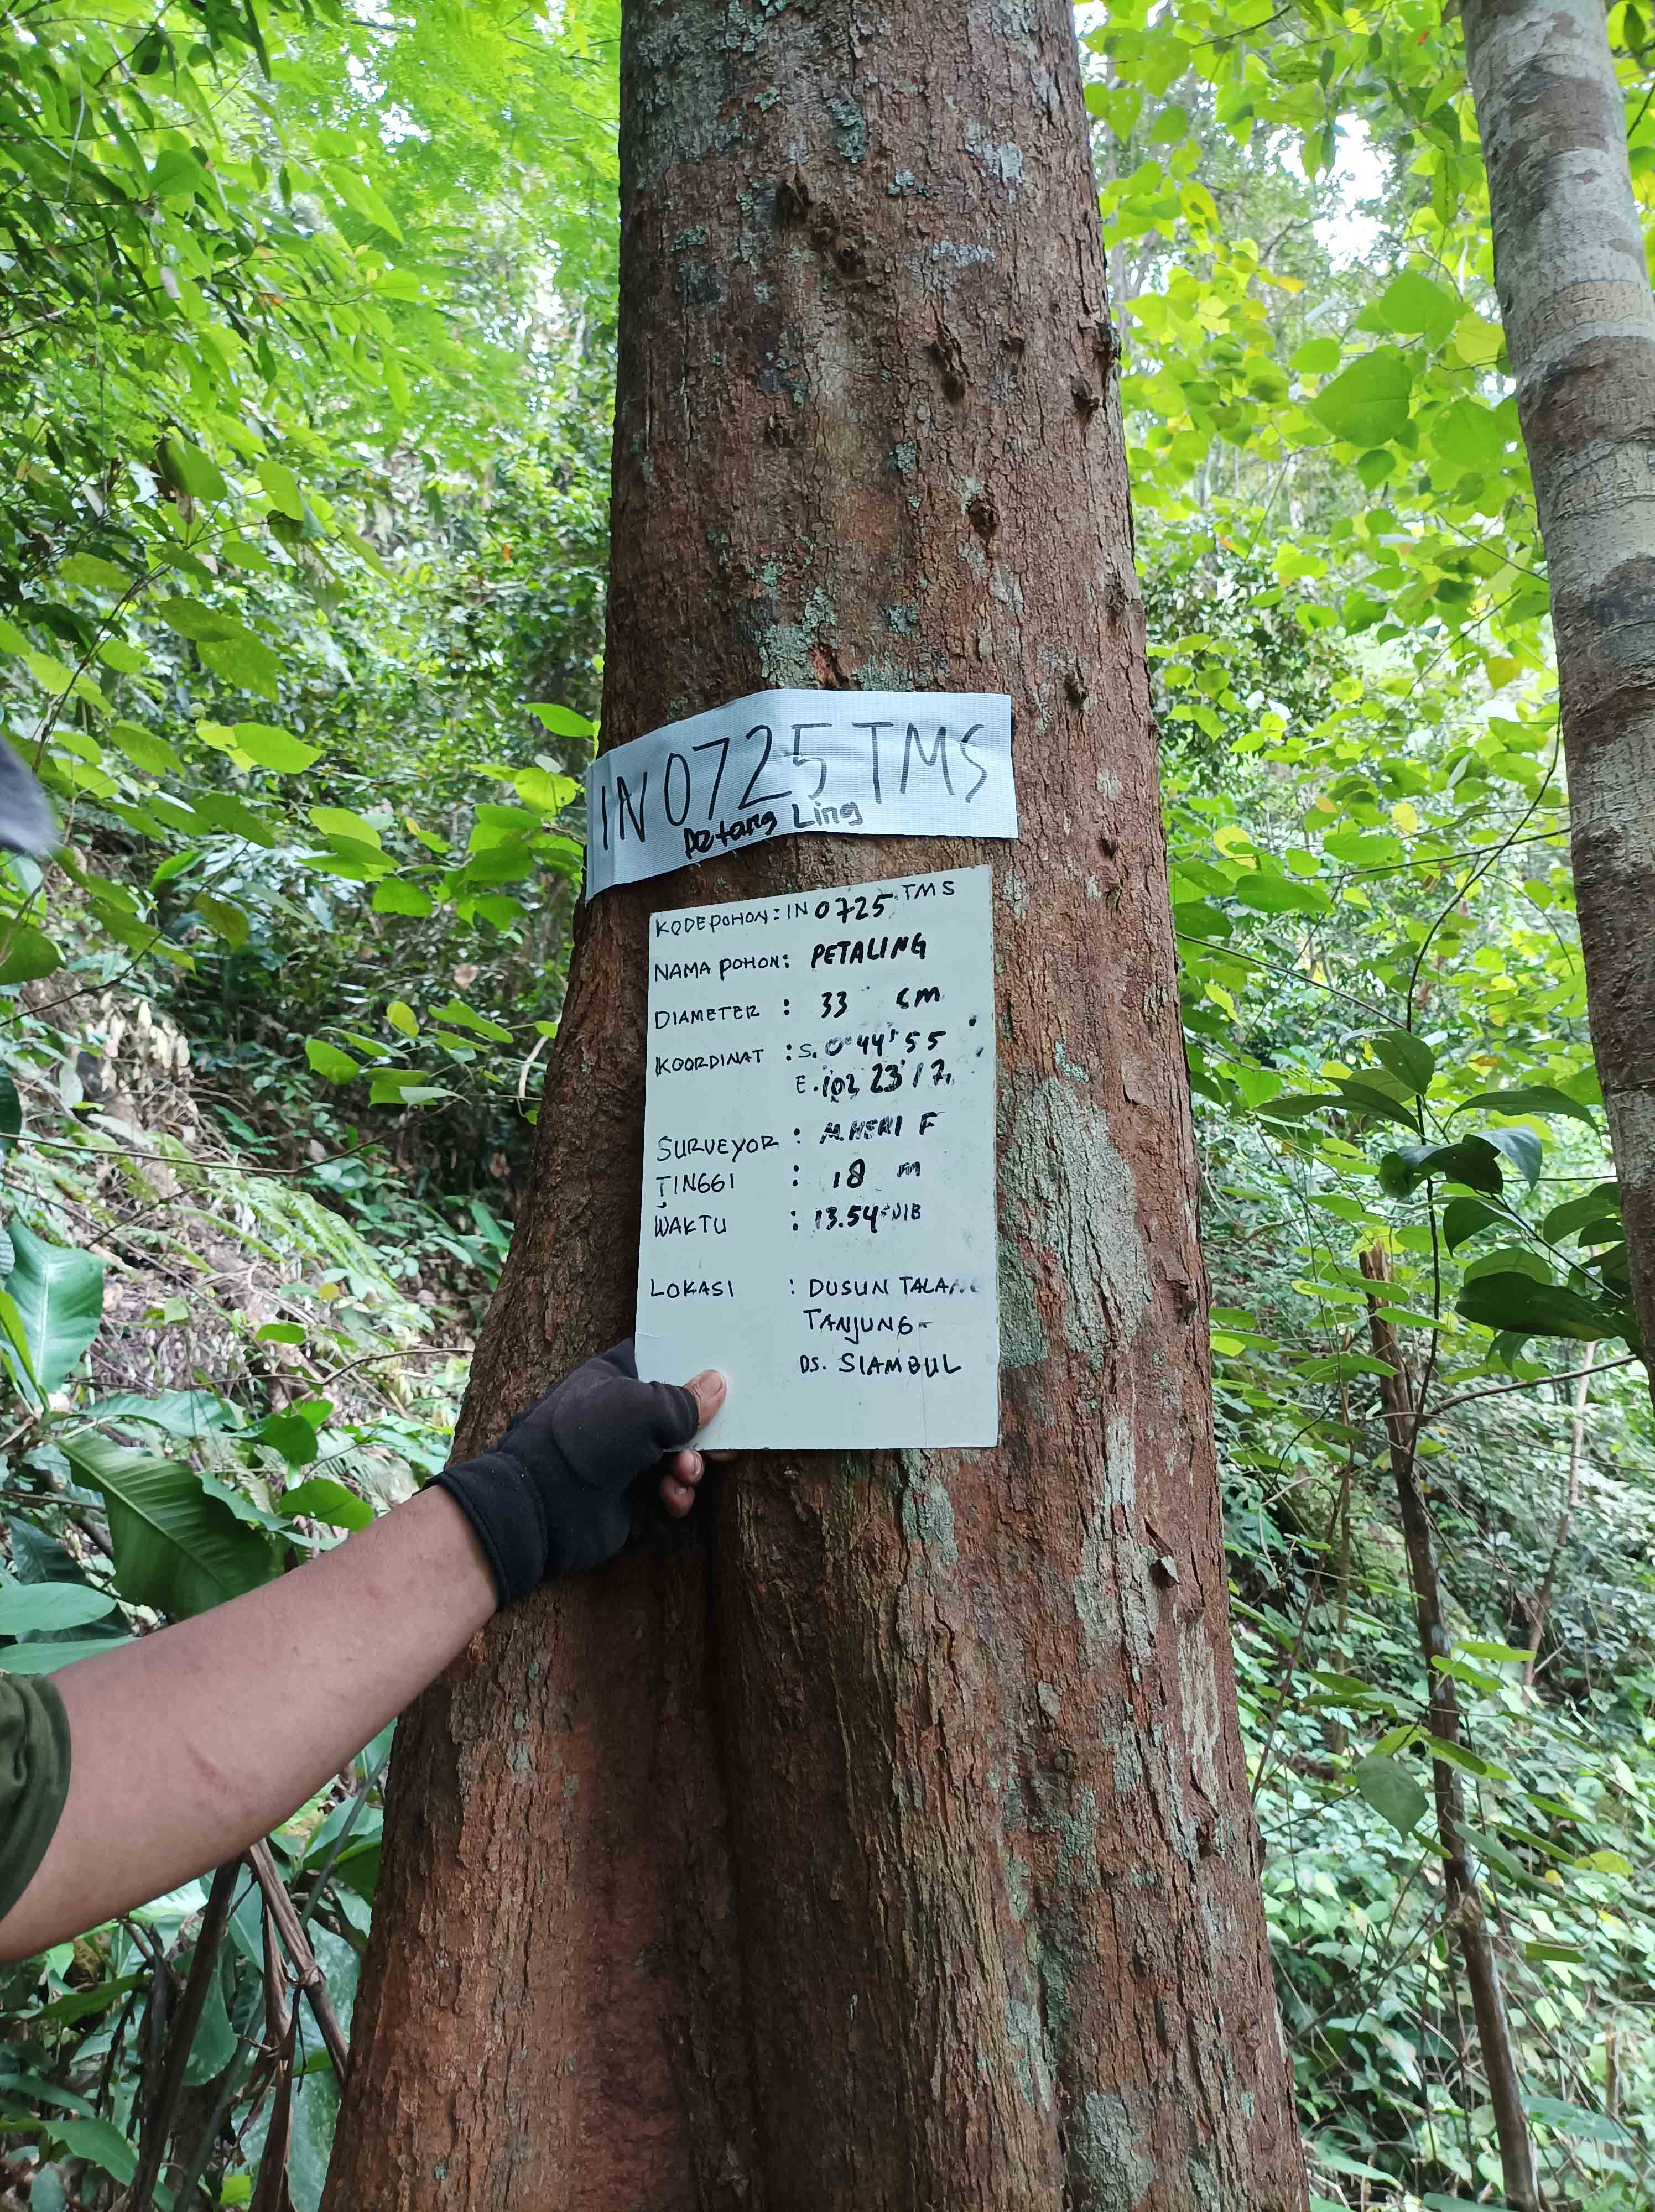 IN 0725 TMS
Petang Ling
KODE POHON : IN 0725 TMS
NAMA POHON : PETALING
DIAMETER : 33 CM
KOORDINAT : S. 0°44'55
E. 102 23'17,
SURVEYOR : M. HERI F
TINGGI : 18 m
WAKTU : 13.54 WIB
LOKASI : DUSUN TALANG
TANJUNG
DS. SIAMBUL